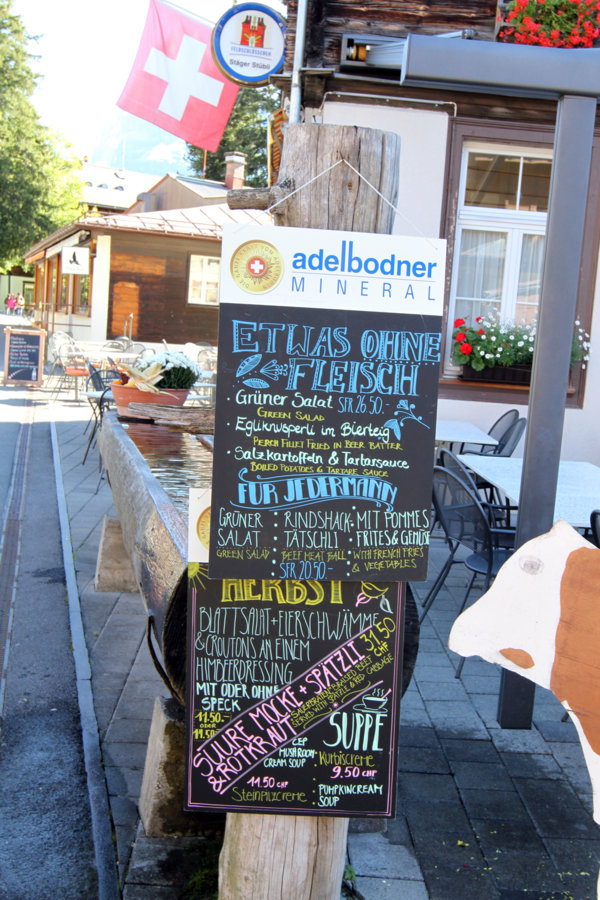 FELDSCHLÖSSCHEN
Stäger Stübli
adelbodner
MINERAL
ETWAS OHNE
FLEISCH
Grüner Salat SFR 26.50.-
GREEN SALAD
Egliknusperli im Bierteig
PERCH FILLET FRIED IN BEER BATTER
Salzkartoffeln & Tartarsauce
BOILED POTATOES & TARTARE SAUCE
FÜR JEDERMANN
GRÜNER RINDSHACK- MIT POMMES
SALAT TÄTSCHLI FRITES & GEMÜSE
GREEN SALAD BEEF MEAT BALL WITH FRENCH FRIES
& VEGETABLES
SFR 20.50.-
HERBST
BLATTSALAT + EIERSCHWÄMME
& CROUTONS AN EINEM
HIMBEERDRESSING
MIT ODER OHNE
SPECK
11.50.-
ODER
SUURE MOCKE + SPÄTZLI 31.50
& ROTKRAUT
SAUERBRATEN BRAISED BEEF
SERVED WITH SPÄTZLE & RED CABBAGE
SUPPE
CEP
MUSHROOM
CREAM SOUP
11.50 CHF
Steinpilzcreme
Kürbiscreme
9.50 CHF
PUMPKINCREAM
SOUP